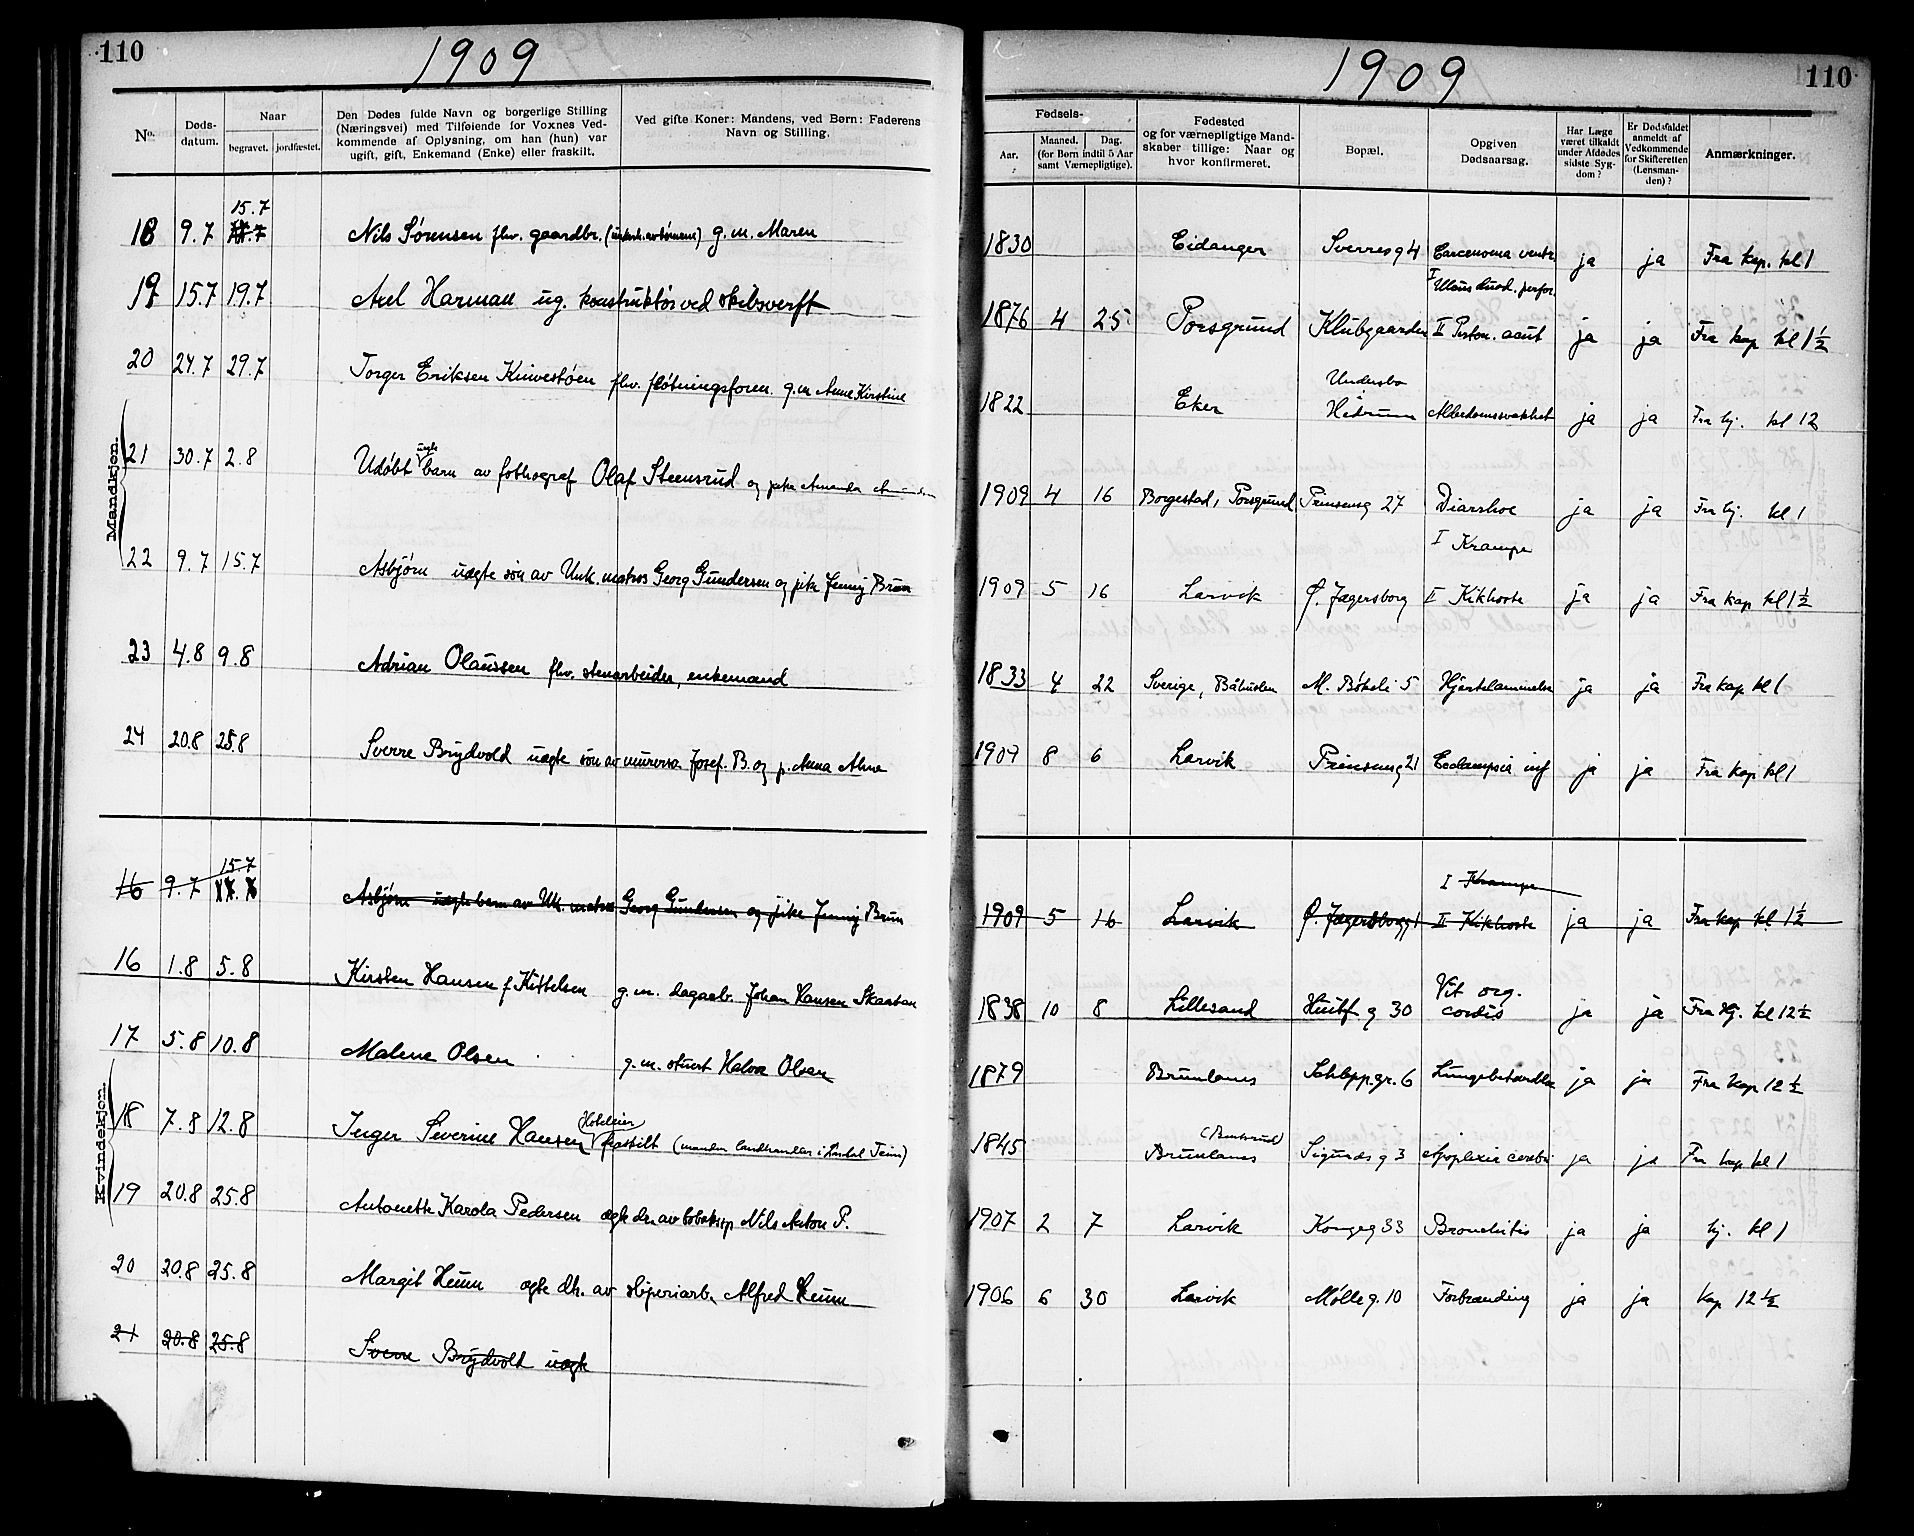 110
1909
1909
110
No.
Døds-
datum.
Naar
begravet.
jordfæstet.
Den Dødes fulde Navn og borgerlige Stilling
(Næringsvei) med Tilføiende for Voxnes Ved-
kommende af Oplysning, om han (hun) var
ugift, gift, Enkemand (Enke) eller fraskilt.
Ved gifte Koner: Mandens, ved Børn: Faderens
Navn og Stilling.
Fødsels-
Aar.
Maaned.
Dag.
(for Børn indtil 5 Aar
samt Værnepligtige).
Fødested
og for værnepligtige Mand-
skaber tillige: Naar og
hvor konfirmeret.
Bopæl.
Opgiven
Dødsaarsag.
Har Læge
været tilkaldt
under Afdødes
sidste Syg-
dom?
Er Dødsfaldet
anmeldt af
Vedkommende
for Skifteretten
(Lensman-
den)?
Anmærkninger.
Mandkjøn.
15.7
18 9.7 Nils Sørensen fhv. gaardbr. g.m. Maren 1830 Eidanger Sverresg 4 Carcenoma ventr. ja ja Fra kap. kl 1
I Ulcus duod. perfor.
19 15.7 19.7 Axel Harman ug. konstruktør ved skibsverft 1876 4 25 Porsgrund Klubgaarden II Periton. acut ja ja Fra kap kl 1½
Undersbo
20 24.7 29.7 Torger Eriksen fhv. fløtningsforem. g.m Anne Kirstine 1822 Eker Hedrum Alderdomssvakhet ja ja Fra hj. kl 12
uegte
21 30.7 2.8 Udøbt barn av fothograf Olaf Steensrud og pike Amanda 1909 4 16 Borgestad, Porsgrund Prinsensg 27 Diarrhoe ja ja Fra hj. kl 1
I Krampe
22 9.7 15.7 Asbjørn uægte søn av Unk. matros Georg Gundersen og pike Jenny Brun 1909 5 16 Larvik Ø. Jægersborg II Kikhoste ja ja Fra kap kl 1½
23 4.8 9.8 Adrian Olaussen fhv. stenarbeider, enkemand 1833 4 22 Sverige, Båhuslen M. Bøkeli 5 Hjertelammelse ja ja Fra kap kl 1
24 20.8 25.8 Sverre Brydvold uægte søn av murersv. Josef. B. og p. Anna 1909 8 6 Larvik Prinsensg 21 Eclampsia inf ja ja Fra kap kl 1
Kvindekjøn.
15.7
I Krampe
16 9.7 Asbjørn uægte barn av Uk. matros Georg Gundersen og pike Jenny Brun 1909 5 16 Larvik Ø. Jægersborg 1 II Kikhoste ja ja Fra kap kl 1½
Vit org.
16 1.8 5.8 Kirsten Hansen f Kittelsen g.m. dagarb. Johan Hansen 1838 10 8 Lillesand Huitf g 30 cordis ja ja Fra Hj. kl 12½
17 5.8 10.8 Malene Olsen g.m. stuert Halvor Olsen 1879 Brunlanes Schleppgr. 6 ja ja Fra kap 12½
Hoteleier
18 7.8 12.8 Inger Severine Hansen fraskilt (manden landhandler i) 1845 Brunlanes Sigurds g 3 Apoplexia cerebri ja ja Fra kap kl 1
19 20.8 25.8 Antonette Karola Pedersen ægte dr. av Nils Anton P. 1907 2 7 Larvik Kongeg 33 Bronchitis ja ja hj. kl 1
20 20.8 25.8 Margit Heum ægte dtr. av sliperiarb. Alfred Heum 1906 6 30 Larvik Mølleg. 10 Forbrænding ja ja Kap 12½
21 20.8 25.8 Sverre Brydvold uægte